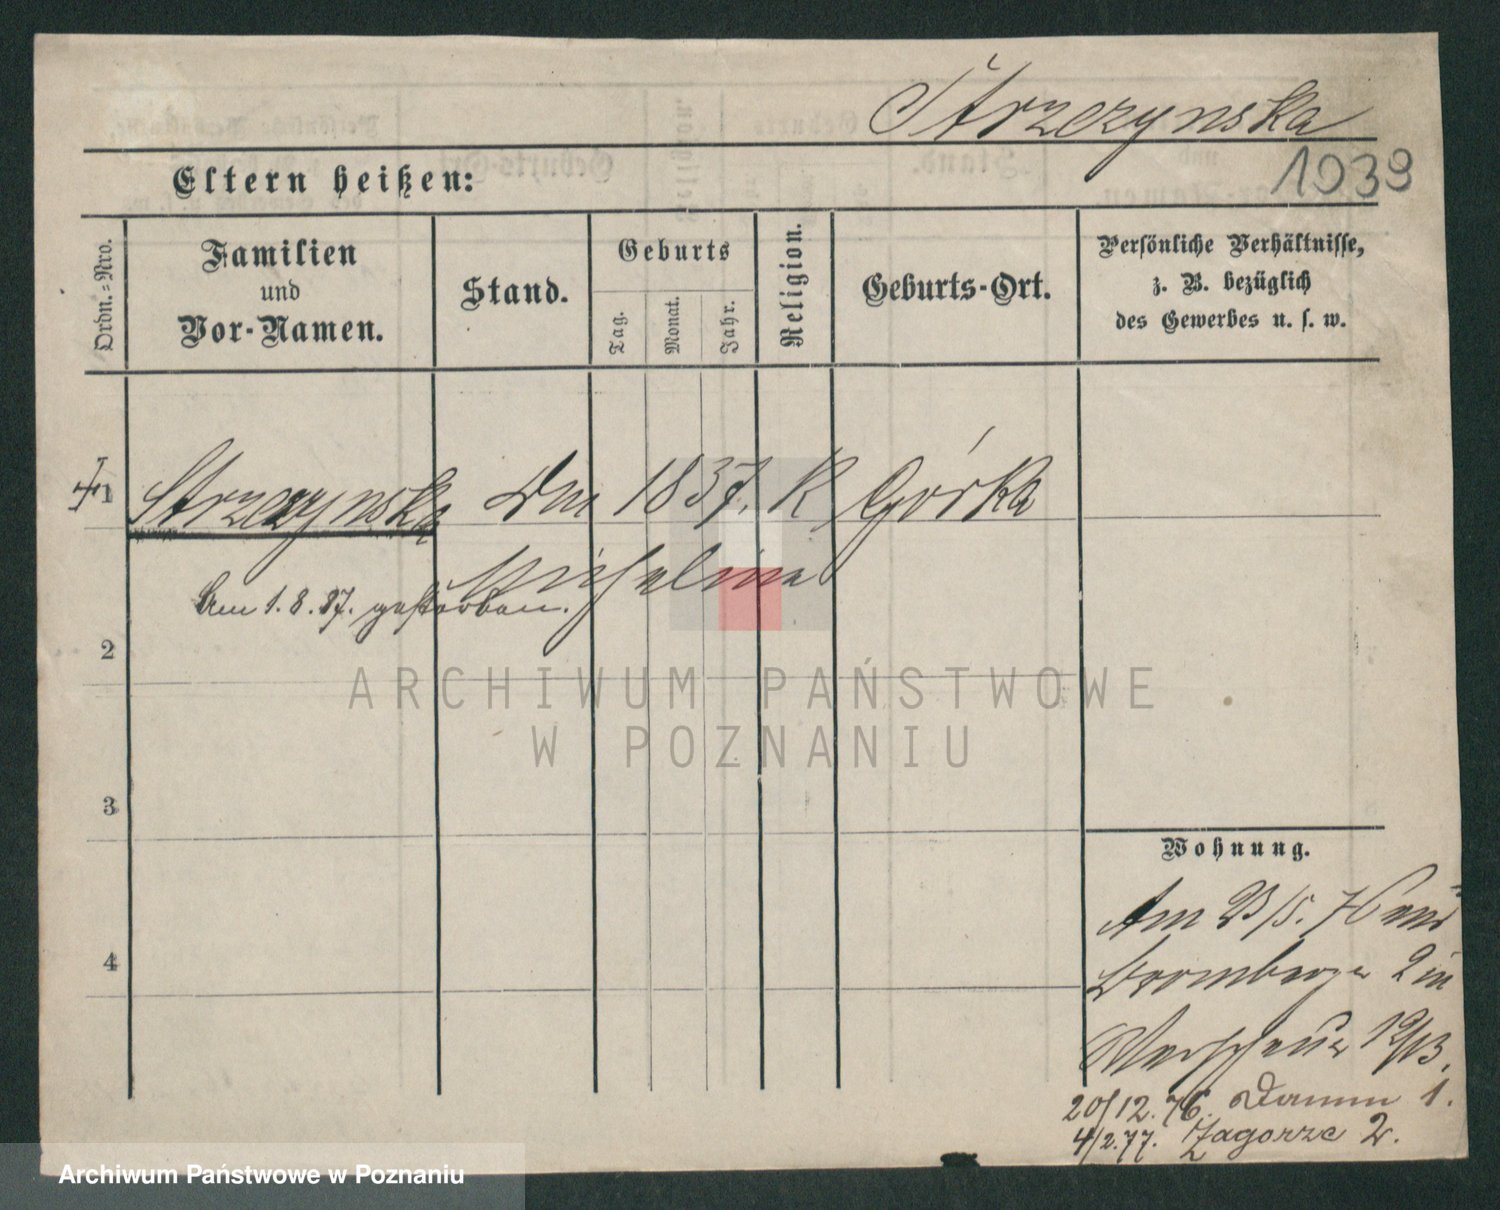 Strzczynska
1939
Eltern heißen:
Ordn.=Nro.
Familien
und
Vor-Namen.
Stand.
Geburts
Tag.
Monat.
Jahr.
Religion.
Geburts-Ort.
Persönliche Verhältnisse,
z. B. bezüglich
des Gewerbes u. s. w.
1 Strzczynska 1837. K Górka
Am 1. 8. 87. gestorben.
2
ARCHIWUM PAŃSTWOWE
W POZNANIU
3
Wohnung.
4
Am 23/5. 76 aus
Bromberger 2 in
Warschauer 12/13.
20/12. 76. Damm 1.
4/2. 77. Zagorze 2.
Archiwum Państwowe w Poznaniu